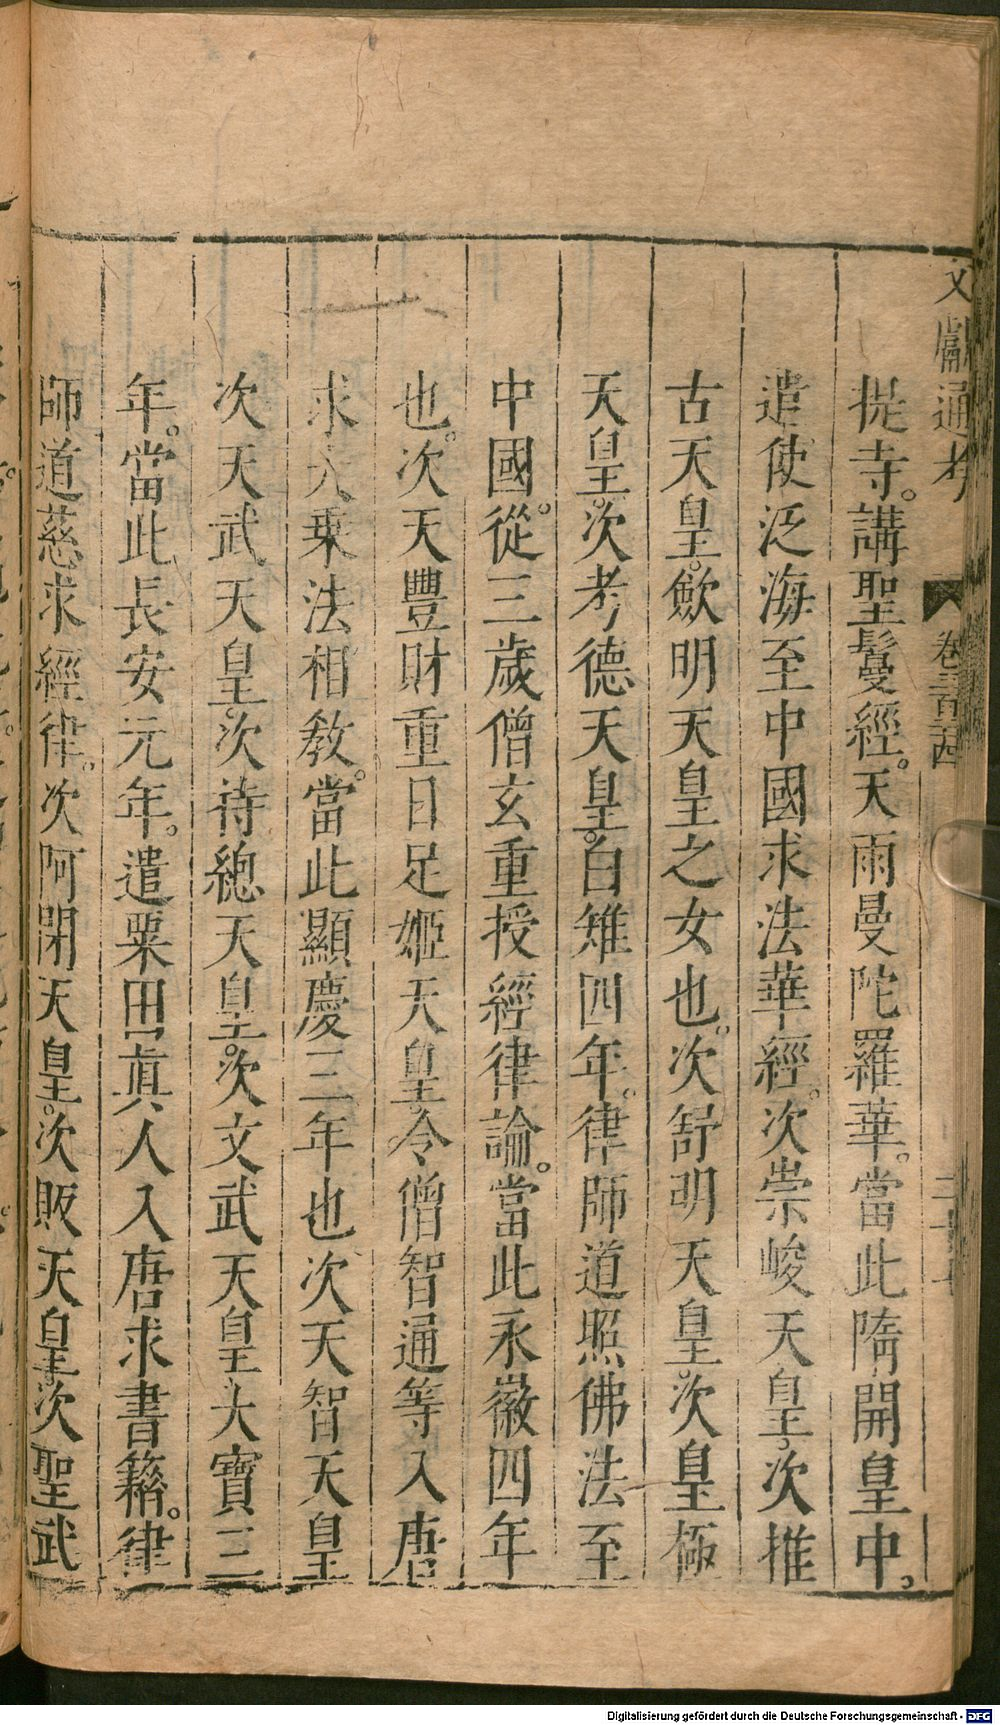 文獻通考 卷三百二十四
提寺。講聖鬘經。天雨曼陀羅華。當此隋開皇中。
遣使泛海至中國求法華經。次崇峻天皇。次推
古天皇。欽明天皇之女也。次舒明天皇。次皇極
天皇。次考德天皇。白雉四年。律師道照佛法至
中國。從三歲僧玄重授經律論。當此永徽四年
也。次天豐財重日足姬天皇。令僧智通等入唐
求大乗法相教。當此顯慶三年也次天智天皇
次天武天皇。次待總天皇。次文武天皇大寶三
年。當此長安元年。遣粟田真人入唐求書籍。律
師道慈求經律。次阿閉天皇。次皈天皇。次聖武
Digitalisierung gefördert durch die Deutsche Forschungsgemeinschaft - DFG